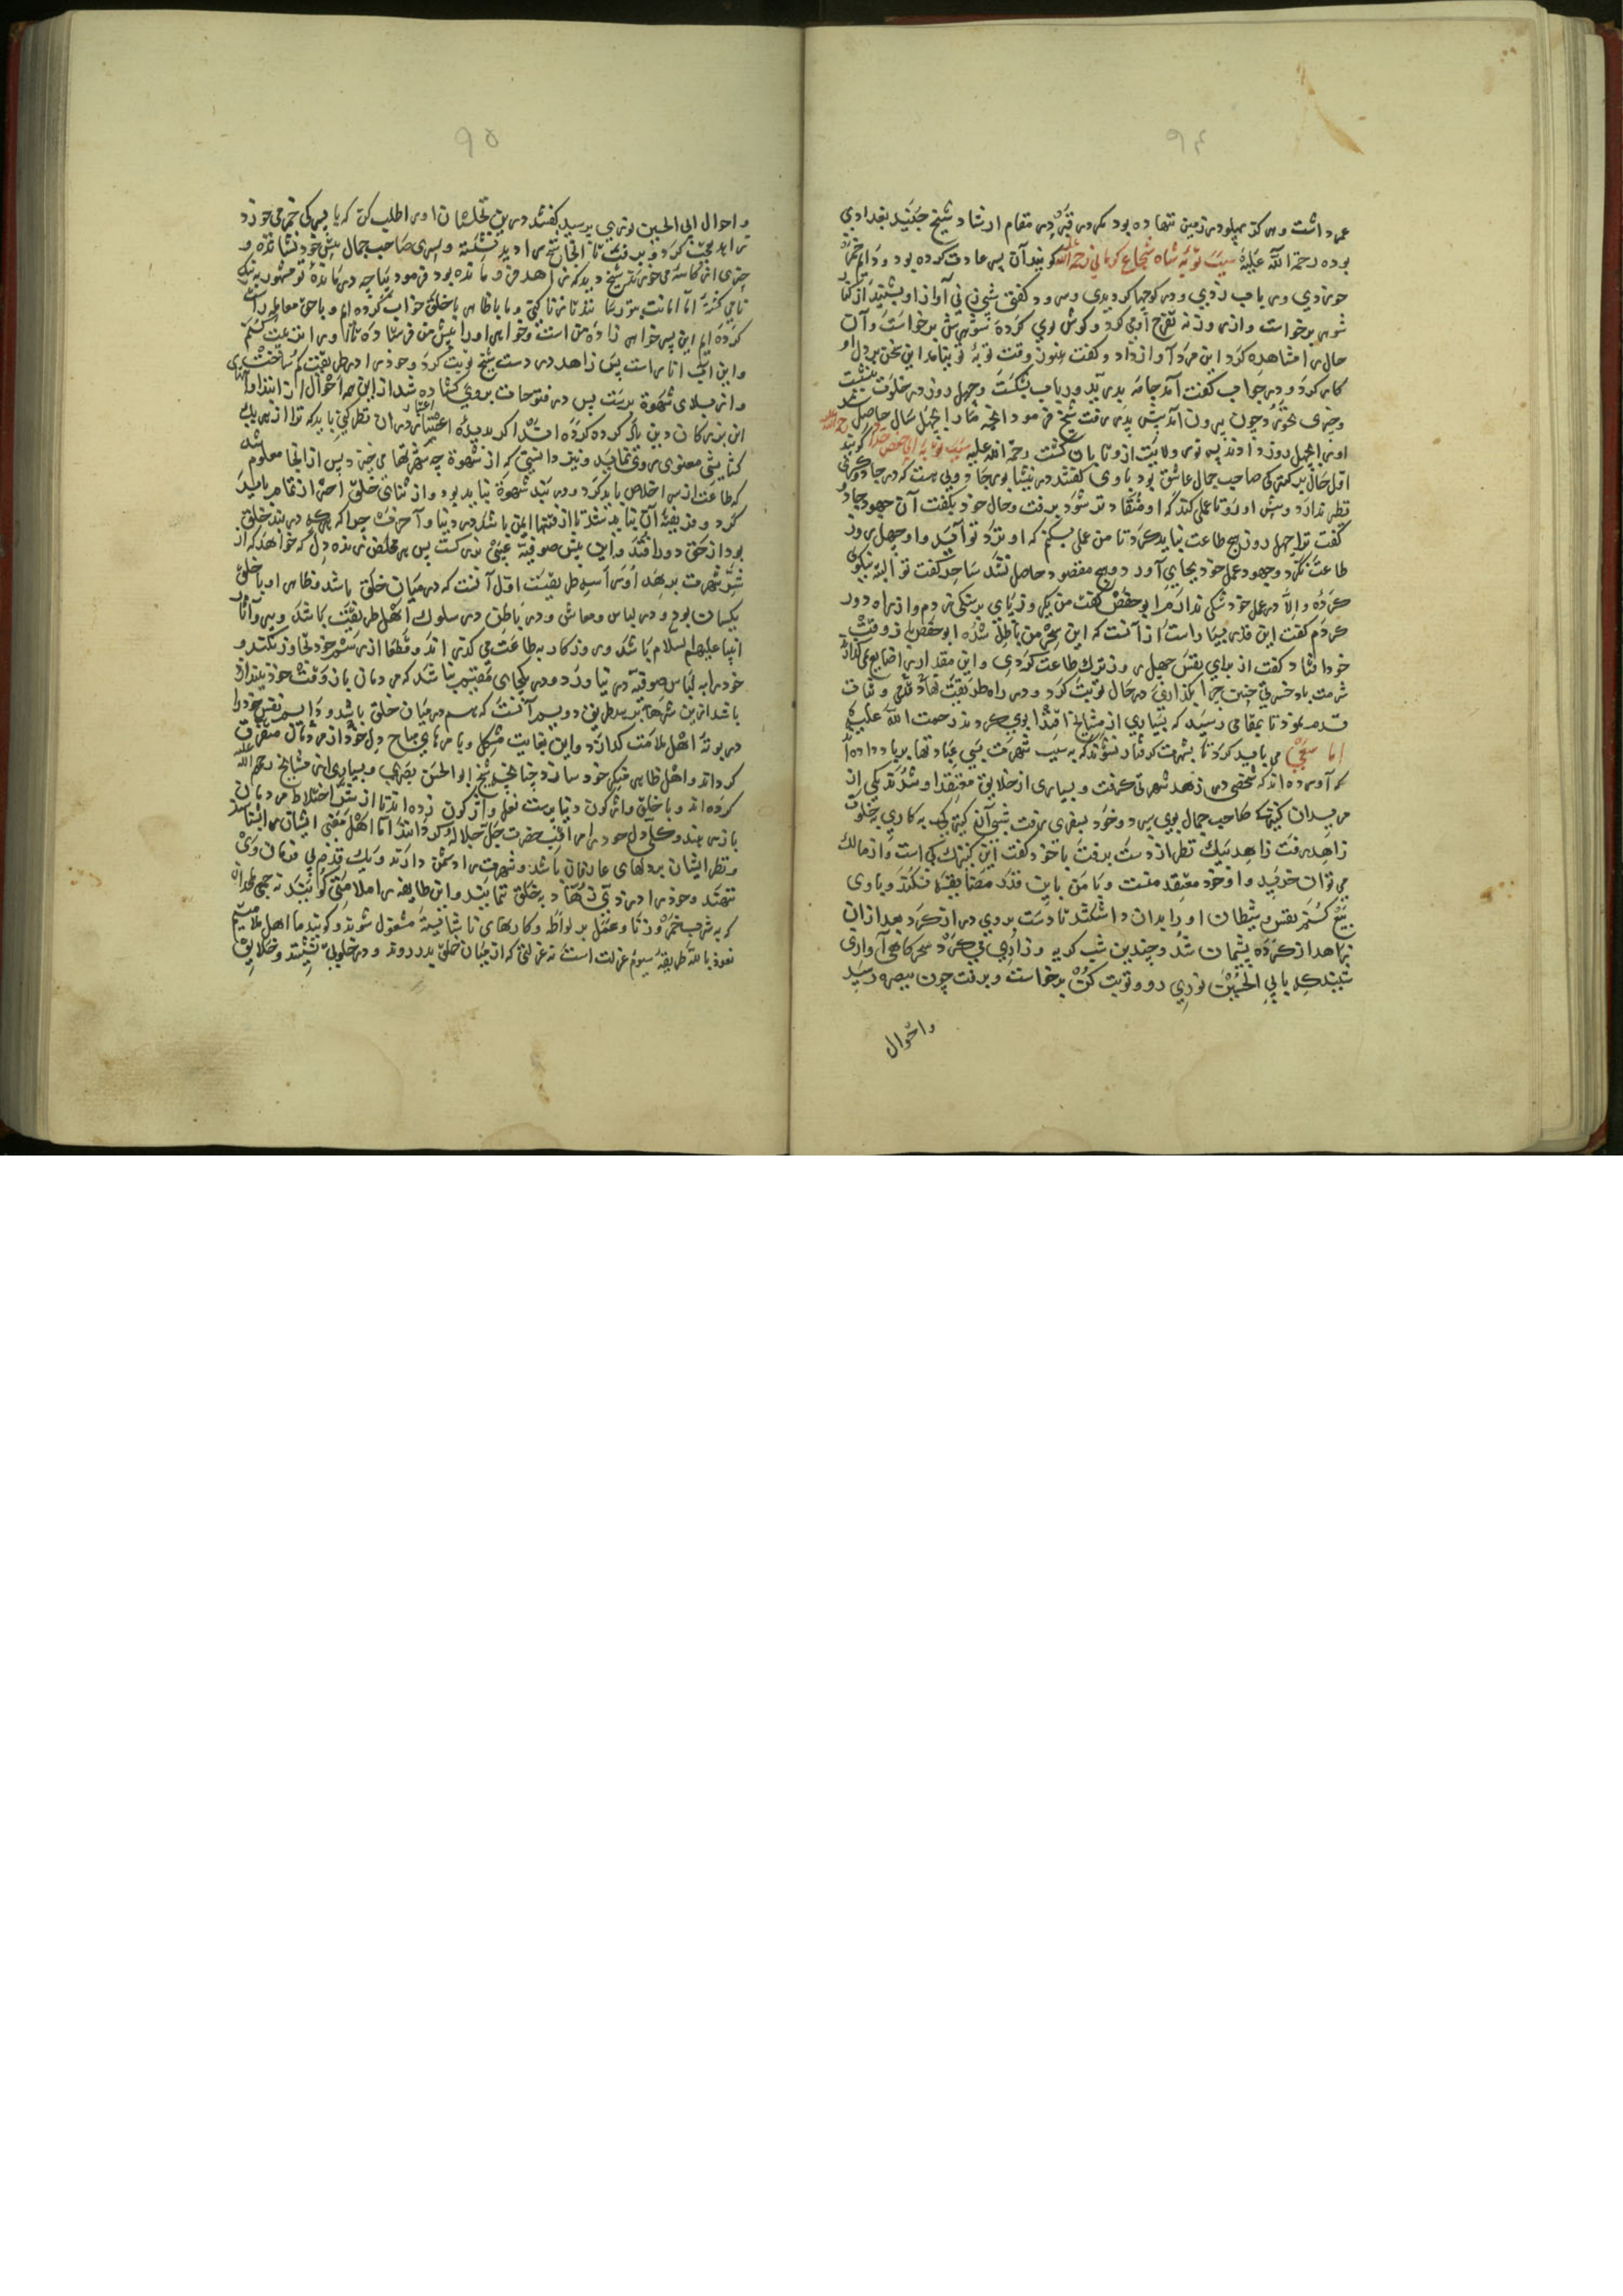 ٩٤
عمر داشت وهر كز پهلو در زمين ننهاده بود مكر در قبر در مقام ارشاد شيخ جنيد بغدادي
بوده رحمة الله عليه سبب توبه شاه شجاع كرماني رحمه الله كويند آن پسر عادت كرده بود ودايم خمر
خوردي ورباب زدي ودر كوچها كرديدي وسرود كفتي شبي زني آواز او بشنيد از كنار
شوهر برخواست واز روزنه تفرج او مي كرد وكوش بوي كرده شوهرش برخواست وآن
حال را مشاهده كرد اين مرد آواز داد وكفت هنوز وقت توبه تو نيامد اين سخن بر دل او
كار كرد ودر جواب كفت آمد جامه بدريد ورباب بشكست وچهل روز در خلوت بنشست
وچيزى نخورد وچون بيرون آمد پيش پدر رفت شيخ فرمود آنچه ما را بچهل سال حاصل شد
او را بچهل روز دادند پس نور ولايت ازو تابان كشت رحمة الله عليه سبب توبه ابي حفص حداد كويند
اول حال بر كنيزكى صاحب جمال عاشق بود باوى كفتند در نيشابور جادويى هست كه در جادوكرى
نظير ندارد پيش او رو تا عملى كند كه او منقاد تو شود برفت وحال خود بكفت آن جهود جادو
كفت ترا چهل روز هيچ طاعت نبايد كرد تا من عملى بكنم كه او نزد تو آيد واو چهل روز
طاعت نكرد وجهود عمل خود بجاي آورد وهيچ مقصود حاصل نشد ساحر كفت تو البته نيكوى
كرده والا در عمل خود شكى ندارم ابو حفص كفت من يكروز پاي بر سنكى زدم واز راه دور
كردم كفت اين قدر بسيار است از آنست كه اين سحر من باطل شده ابو حفص را وقت
خود افتاد كفت از براي نفس چهل روز ترك طاعت كردى واين مقدار را ضايع نمى كذارد
شرمت باد حضرتي چنين چرا بكذارى در حال توبت كرد ودر راه طريقت نهاد قدمى وثبات
قدم نمود تا بمقامى رسيد كه بسيارى از مشايخ اقتدا بوى كردند رحمت الله عليه
اما سعى مى بايد كرد تا بشهرت كرفتار نشوند كه به سبب شهرت بسى عبادتها برباد داده اند
كه آورده اند كه شخصى در زهد شهرتى كرفت وبسيارى از خلايق معتقد او شدند يكى از
مريدان كنيزك صاحب جمال بوى سپرد وخود بسفرى رفت شبى آن كنيزك به كارى بخلوت
زاهد رفت زاهد نيك نظر از دست برفت با خود كفت اين كنيزك كى است واز مالك
مى توان خريد واو خود معتقد منست وبا من باين قدر مضايقه نكند وباوى
بيع كنم نفس وشيطان او را بدان داشتند تا دست بروى دراز كرد بعد از ان
زاهد از كرده پشيمان شد وچندين شب كريه وزارى مى كرد سحركاهى آوازى
شنيد كه يا ابي الحسين نوري رو وتوبت كن برخواست وبرفت چون ببصره رسيد
واحوال
٩٥
واحوال ابى الحسين نوري پرسيد كفتند در بين محلها ان او را طلب كن كه با پسركى خمر مى خورد
زاهد تعجب كرد وبرفت تا آنجا شيخ را ديد نشسته وپسرى صاحب جمال پيش خود نشانده و
چيزى از كاسه مى خورند شيخ ديد كه زاهد فرو مانده بود فرمود بيا چه در مانده تو مشهور به نيك
نامى كشته اما امانت مؤمنان نكاه نداشتى وما با ظاهر با خلق خراب كرده ايم وباحق معامله راست
كرده ايم اين پسر خواهر زاده من است وخواهرم او را پيش من فرستاده تا او را تربيت كنم
واين آب انار است پس زاهد در دست شيخ توبت كرد وخود را در طريقت كم ساخت
واز بلاى شهرة برست پس در فتوحات بروي كشاده شد از اين همه احوال از ابتدا وانتهاى
اين بزركان دين ياد كرده كرده اقتدا كر بديده اعتبار در آن نظر كنى بايد كه ترا از هر يكى
كشايشى معنوى روى نمايد ونيز دانستى كه از شهوة چه شرها مى خيزد پس از اينجا معلوم شد
كه طاعت از سر اخلاص بايد كرد ودر بند شهوة نبايد بود واز ثناى خلق احتراز تمام بايد
كرد وفريفته آن نبايد شد تا از فتنها ايمن باشد در دنيا وآخرت چرا كه هر كه در بند خلق
بود از حق دور افتد واين پيش صوفيه عيبى بزرك است پس هر مخلص زنده دل كه خواهد كه از
شر شهرت برهد او را سه طريقست اول آنست كه در ميان خلق باشد وظاهر او با خلق
يكسان بود ودر لباس ومعاش ودر باطن در سلوك اهل طريقت باشد وپيرو آثار
انبيا عليهم السلام باشد وروزكار به طاعت مى كذراند وقطعا از رسم خود تجاوز نكند و
خود را به لباس صوفيه در نياورد ودر يكجاى مقيم نباشد كه مردمان باز وقتش خود بيندازند
باشد ازين شرها برهد طريق دويم آنست كه هم در ميان خلق باشد ودايم نفس خود را
در بوته اهل ملامت كدازد واين بغايت مشكل وبا مرهاى مباح دل خود از مردمان متفرق
كرداند واهل ظاهر منكر خود سازد چنانچه شيخ ابو الحسن بصرى وبسيارى از مشايخ رحمهم الله
كرده اند وبا خلق واژكون دنيا پرست نعل واژكون زده اند تا از شر اختلاط مردمان
باز رهند وكلى دل خود را در انجب حضرت جل جلاله كردانند اما اهل معنى ايشان را شناسند
ونظر ايشان بر دلهاى عارفان باشد وشهرت را دشمن دارند ويك قدم بى فرمان وى
ننهند وخود را در زى زهاد به خلق ننمايند واين طايفه را ملامتى كويند نه جمعى ملحدان
كه به شرب خمر وزنا وعمل بر لواطه وكارهاى ناشايسته مشغول شوند وكويند ما اهل ملامتيم
نعوذ بالله طريقه سيوم عزلت است نه عزلتى كه از ميان خلق بدر روند ودر خلوتى نشينند وخلايق